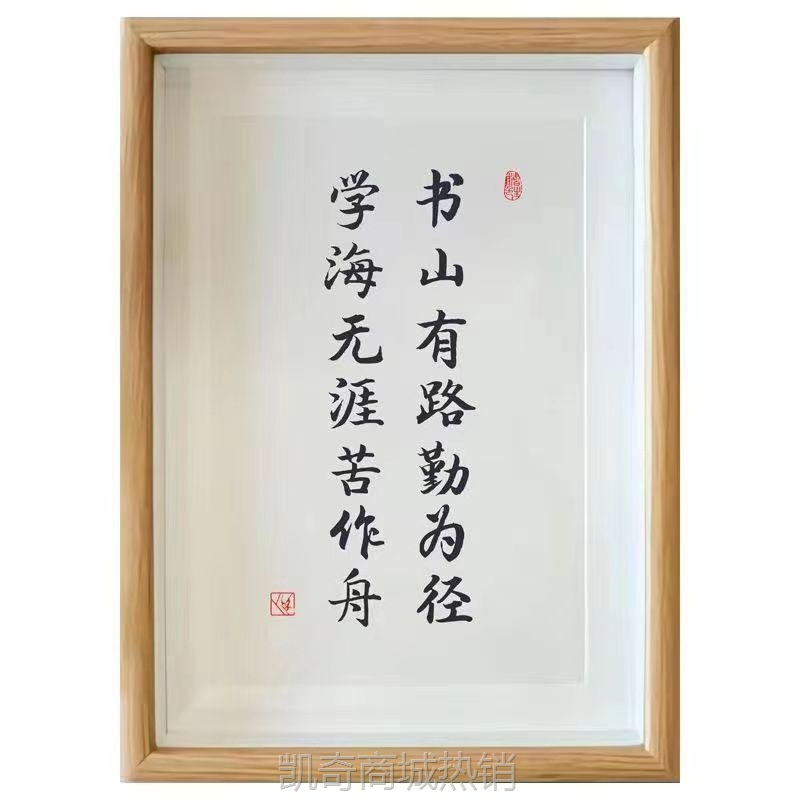 书山有路勤为径
学海无涯苦作舟
凯奇商城热销